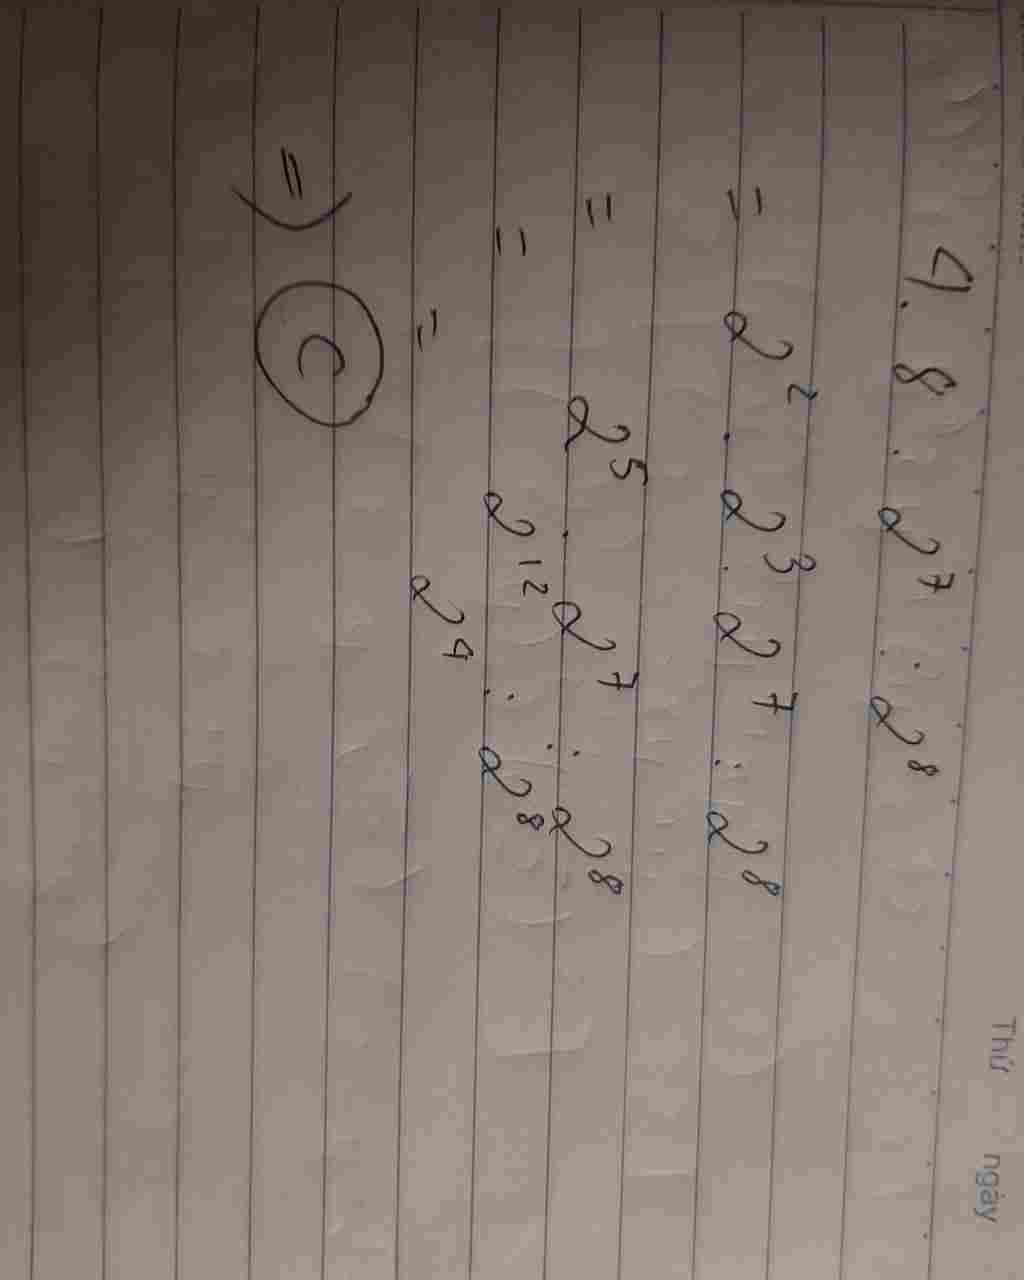 Thứ ngày
4. 8 . 2⁷ : 2⁸
= 2² . 2³ . 2⁷ : 2⁸
= 2⁵ . 2⁷ : 2⁸
= 2¹² : 2⁸
= 2⁴
=) C